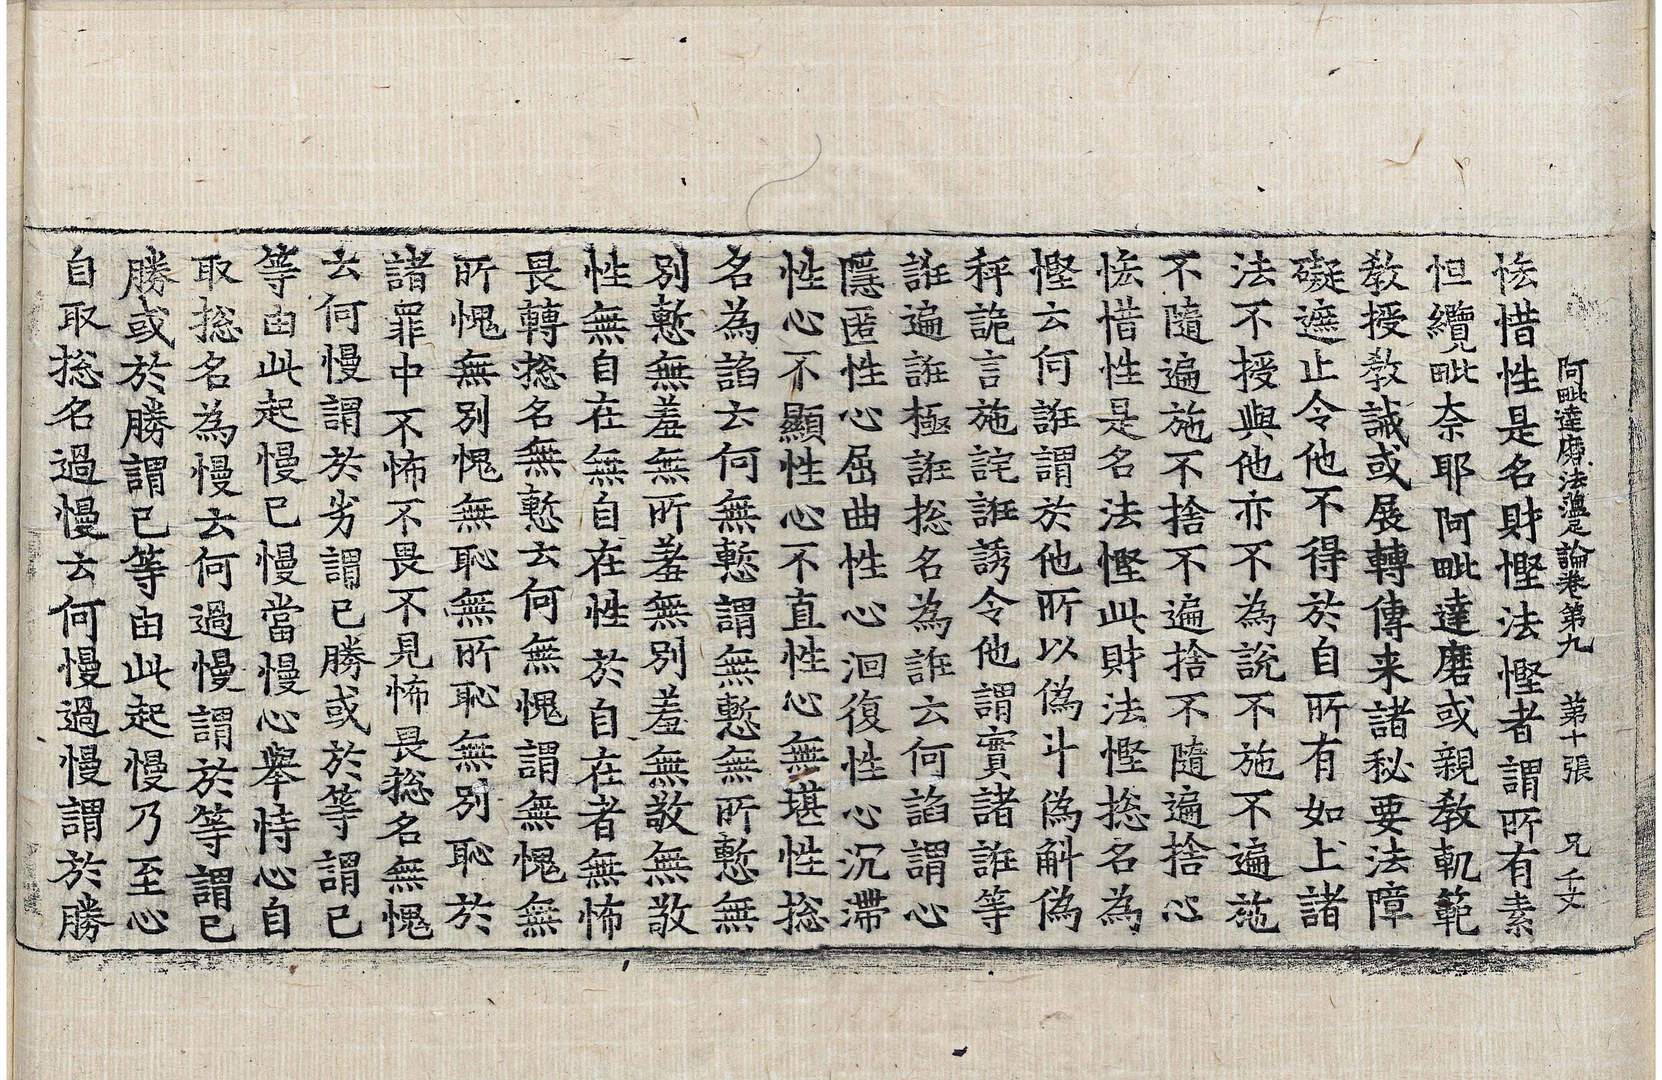 阿毗達磨法蘊足論卷第九 第十張 兄 千文
悋惜性是名財慳法慳者謂所有素
怛纜毗奈耶阿毗達磨或親教軌範
教授教誡或展轉傳来諸秘要法障
礙遮止令他不得於自所有如上諸
法不授與他亦不為說不施不遍施
不隨遍施不捨不遍捨不隨遍捨心
悋惜性是名法慳此財法慳揔名為
慳云何誑謂於他所以偽斗偽斛偽
秤詭言施詫誑誘令他謂實諸誑等
誑遍誑極誑揔名為誑云何諂謂心
隱匿性心屈曲性心洄復性心沉滯
性心不顯性心不直性心無堪性揔
名為諂云何無慙謂無慙無所慙無
別慙無羞無所羞無別羞無敬無敬
性無自在無自在性於自在者無怖
畏轉揔名無慙云何無愧謂無愧無
所愧無別愧無恥無所恥無別恥於
諸罪中不怖不畏不見怖畏揔名無愧
云何慢謂於劣謂已勝或於等謂已
等由此起慢已慢當慢心舉恃心自
取揔名為慢云何過慢謂於等謂已
勝或於勝謂已等由此起慢乃至心
自取揔名過慢云何慢過慢謂於勝